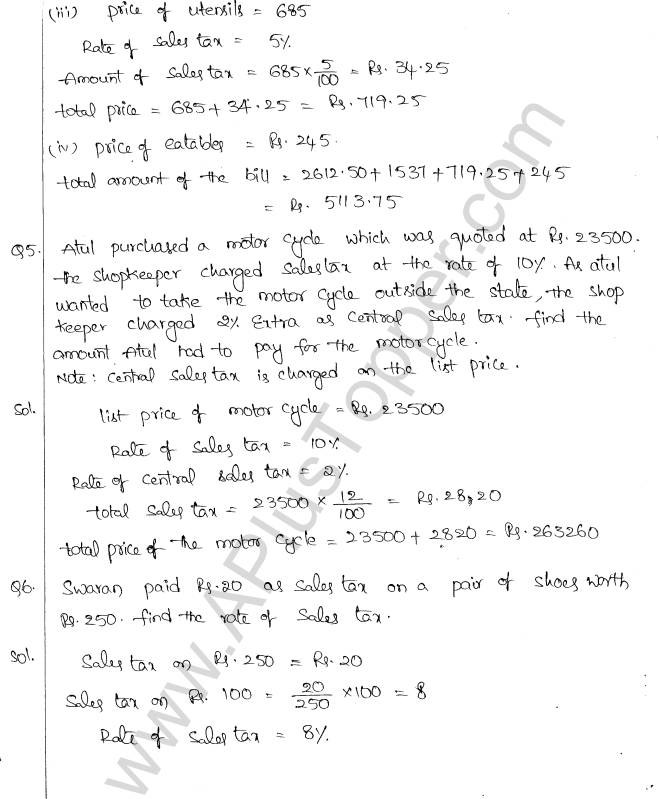 (iii) price of utensils = 685
Rate of sales tax = 5%
Amount of sales tax = 685 × 5/100 = Rs. 34.25
total price = 685 + 34.25 = Rs. 719.25
(iv) price of eatables = Rs. 245.
total amount of the bill = 2612.50 + 1537 + 719.25 + 245
= Rs. 5113.75
Q5. Atul purchased a motor cycle which was quoted at Rs. 23500.
the shopkeeper charged sales tax at the rate of 10%. As atul
wanted to take the motor cycle outside the state, the shop
keeper charged 2% Extra as central sales tax. find the
amount Atul had to pay for the motorcycle.
Note: central sales tax is charged on the list price.
Sol. list price of motor cycle = Rs. 23500
Rate of sales tax = 10%
Rate of central sales tax = 2%
total sales tax = 23500 × 12/100 = Rs. 28,20
total price of the motor cycle = 23500 + 2820 = Rs. 263260
Q6. Swaran paid Rs. 20 as sales tax on a pair of shoes worth
Rs. 250. find the rate of sales tax.
Sol. Sales tax on Rs. 250 = Rs. 20
Sales tax on Rs. 100 = 20/250 × 100 = 8
Rate of sales tax = 8%.
www.APlusTopper.com